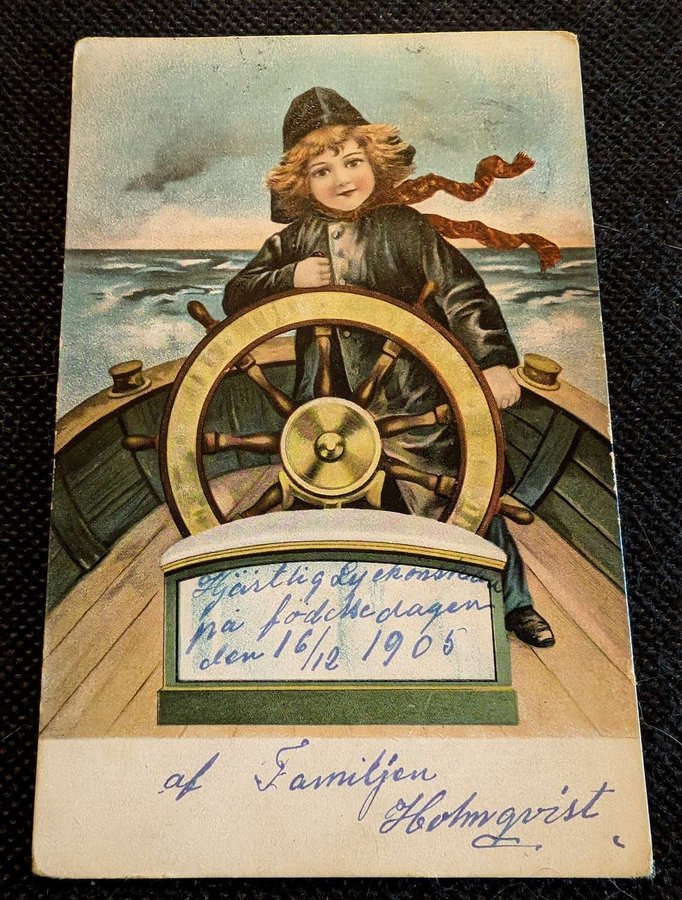 Hjärtlig Lyckönskan
på födelsedagen
den 16/12 1905
af Familjen
Holmqvist